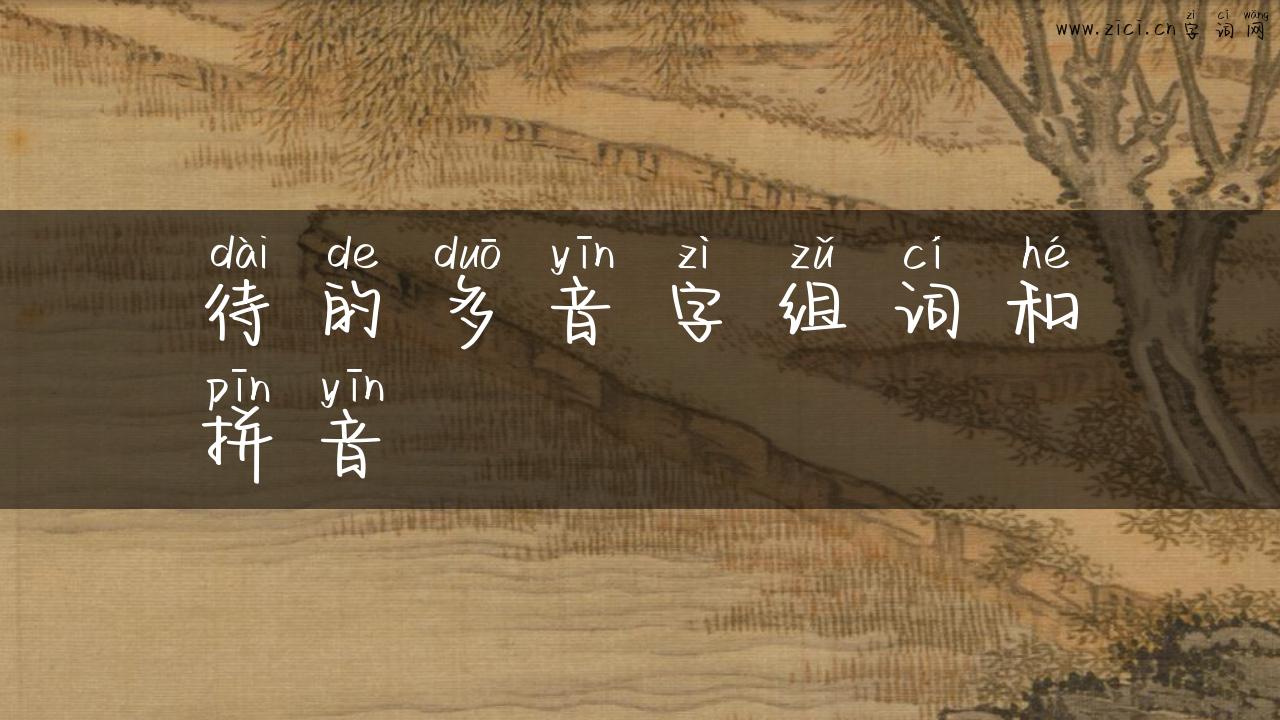 zì cí wǎng
www.zici.cn 字词网
dài de duō yīn zì zǔ cí hé
待的多音字组词和
pīn yīn
拼音